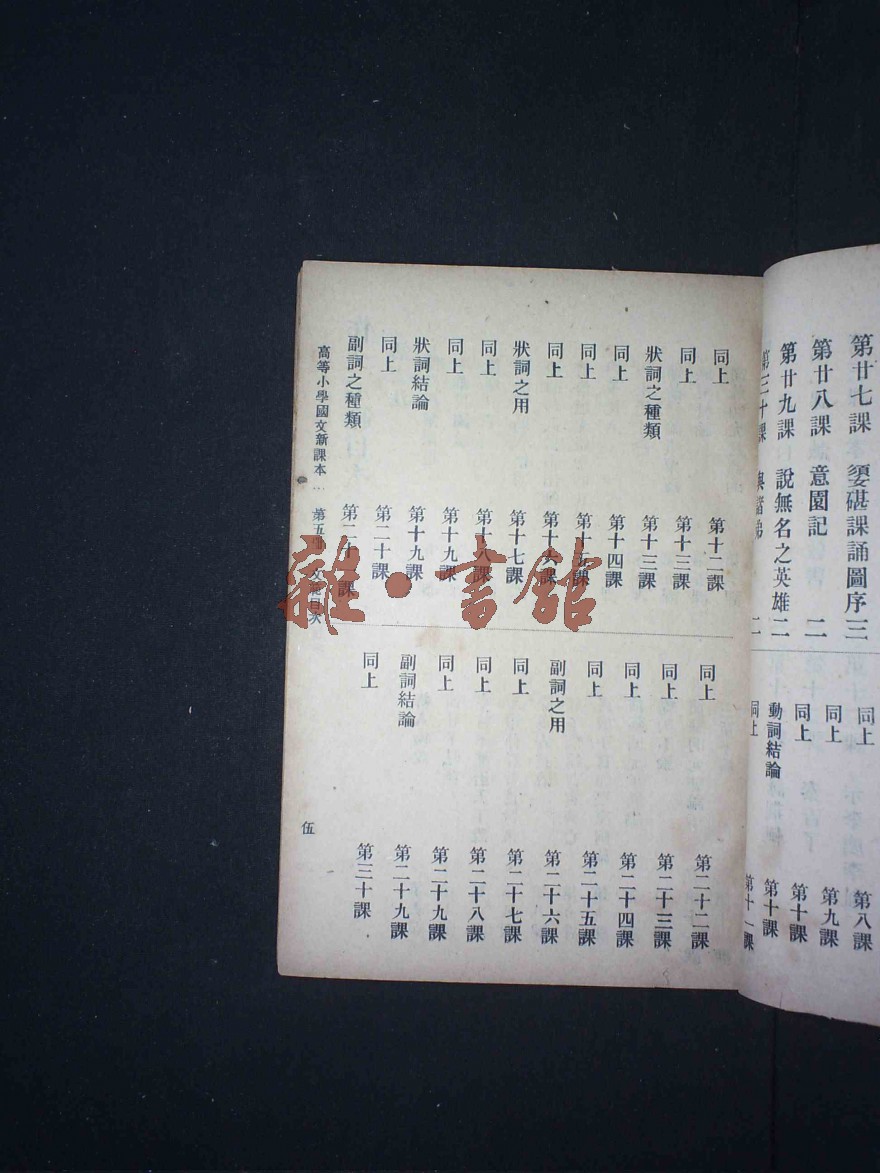 第廿七課 媭碪課誦圖序 三
第廿八課 意園記 二
第廿九課 說無名之英雄 二
第三十課 與諸弟 二
同上 第八課
同上 第九課
同上 第十課
動詞結論 第十課
同上 第十一課
同上 第十二課
同上 第十三課
狀詞之種類 第十三課
同上 第十四課
同上 第十五課
同上 第十六課
狀詞之用 第十七課
同上 第十八課
同上 第十九課
狀詞結論 第十九課
同上 第二十課
副詞之種類 第二十一課
同上 第二十二課
同上 第二十三課
同上 第二十四課
同上 第二十五課
副詞之用 第二十六課
同上 第二十七課
同上 第二十八課
同上 第二十九課
副詞結論 第二十九課
同上 第三十課
高等小學國文新課本 … 第五冊 文範目次
伍
雜·書館